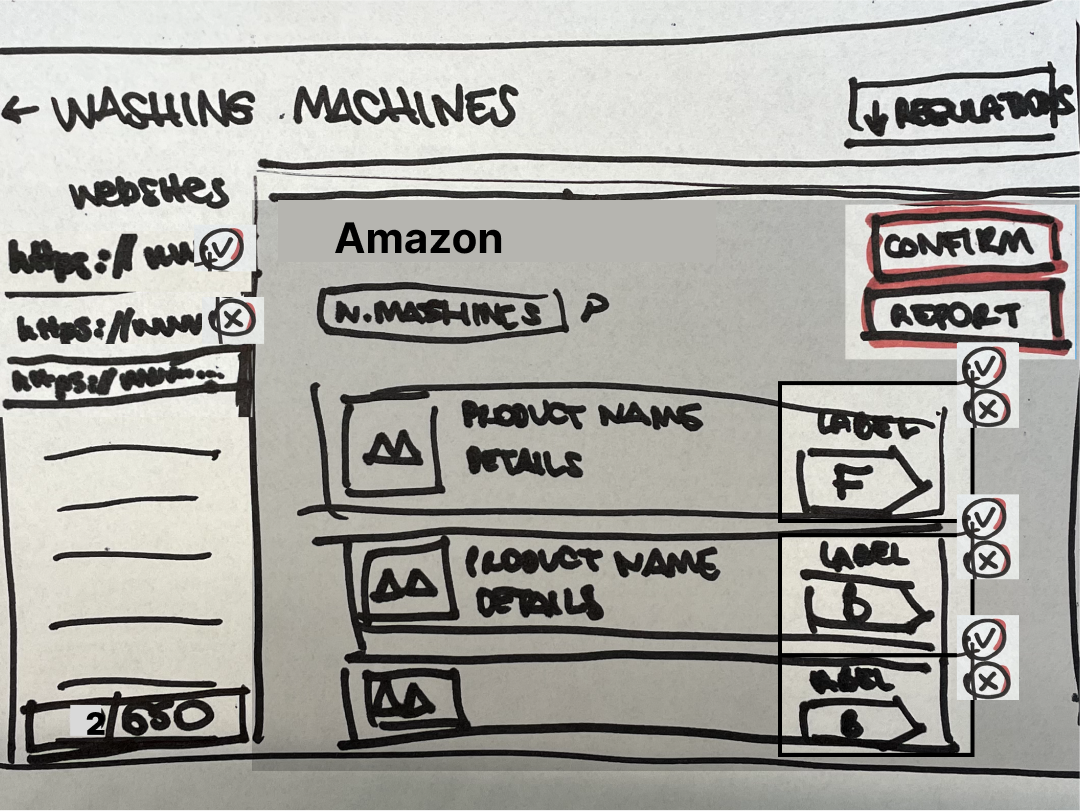 ← WASHING MACHINES
↓ REGULATIONS
websites
https://www
https://www
https://www...
2/650
Amazon
CONFIRM
REPORT
W.MASHINES
PRODUCT NAME
DETAILS
LABEL
F
PRODUCT NAME
DETAILS
LABEL
D
LABEL
B